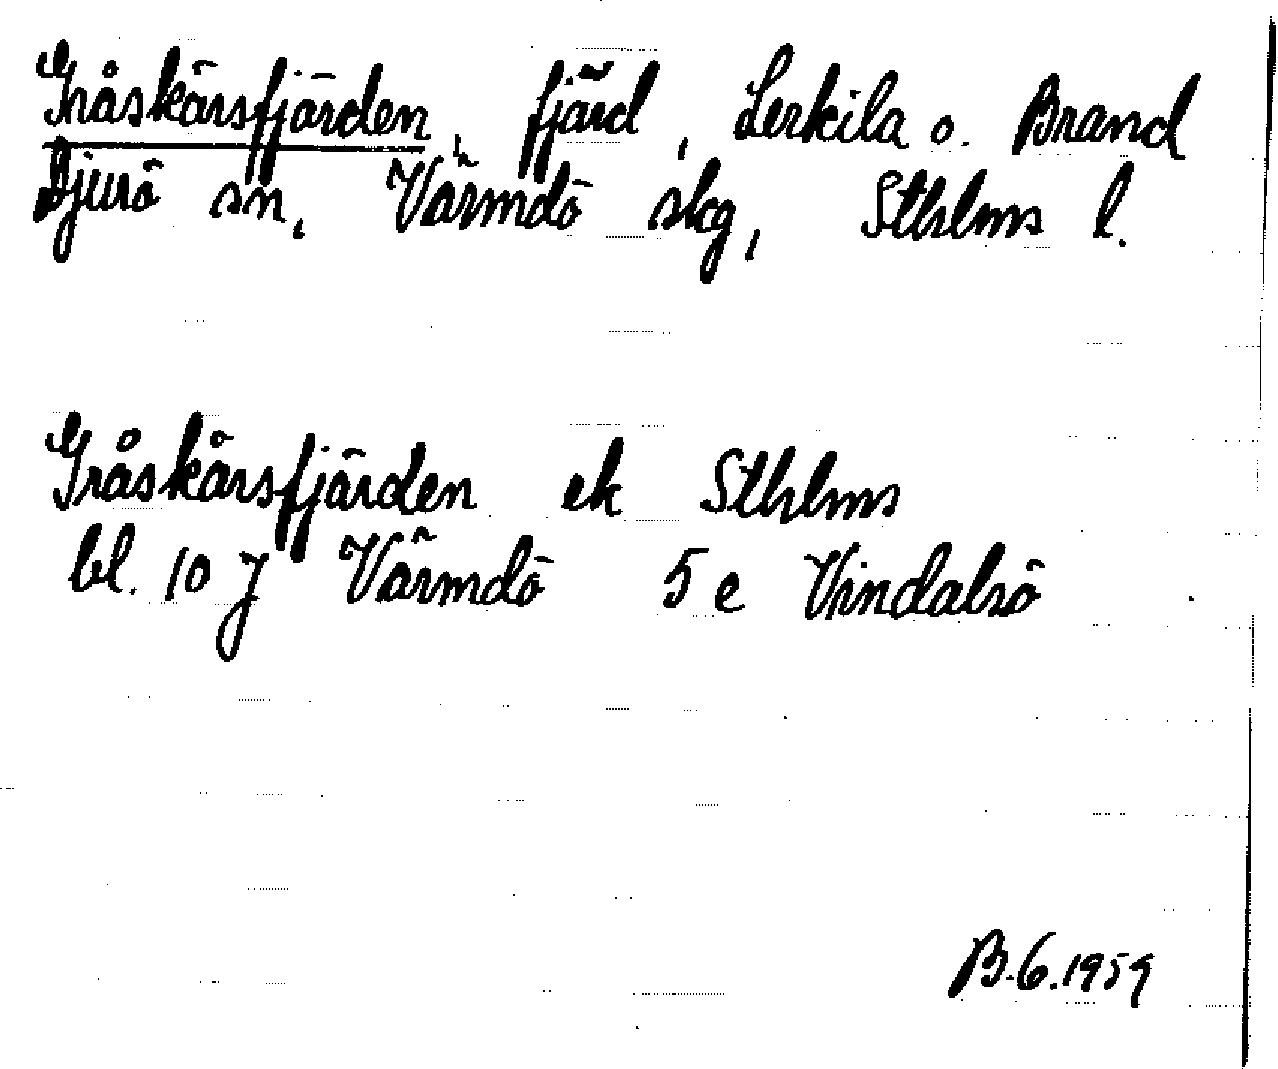 Gråskärsfjärden, fjärd, Lerkila o. Brand
Djurö sn, Värmdö skg, Sthlms l.
Gråskårsfjärden ek Sthlms
bl. 10 J Värmdö 5 e Vindalsö
B.G.1959